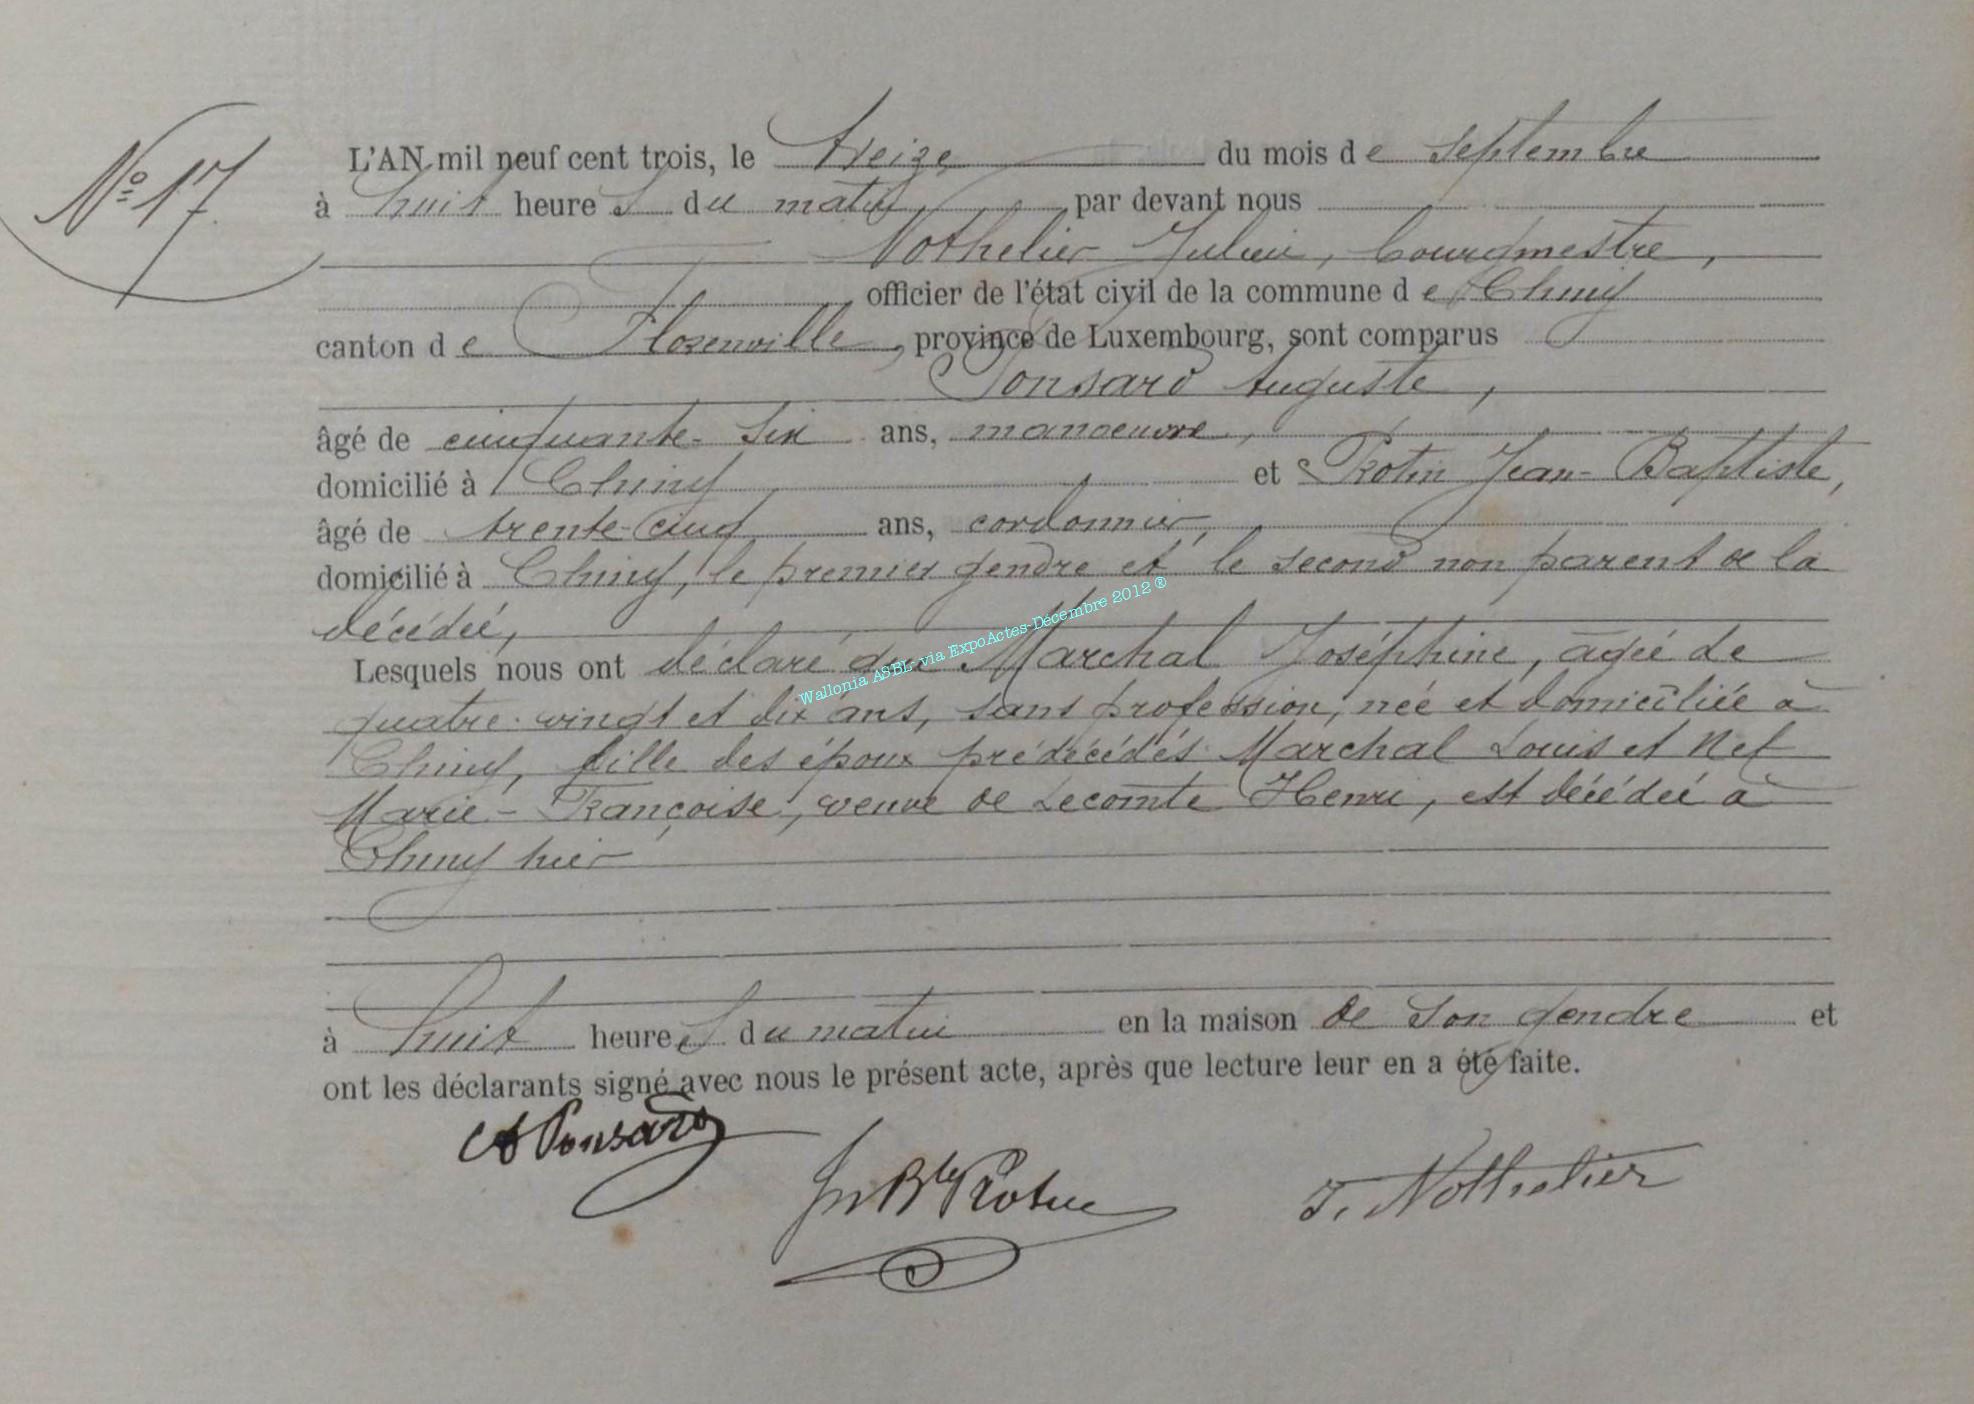 N° 17
L'AN mil neuf cent trois, le treize du mois de septembre
à huit heures du matin par devant nous
Nothelier Julien, bourgmestre,
officier de l'état civil de la commune de Chiny
canton de Florenville, province de Luxembourg, sont comparus
Ponsard Auguste,
âgé de cinquante-six ans, manoeuvre,
domicilié à Chiny et Protin Jean-Baptiste,
âgé de trente-cinq ans, cordonnier,
domicilié à Chiny, le premier gendre et le second non parent de la
décédée,
Lesquels nous ont déclaré que Marchal Joséphine, âgée de
quatre-vingt et dix ans, sans profession, née et domiciliée à
Chiny, fille des époux prédécédés Marchal Louis et Nef
Marie-Françoise, veuve de Lecomte Henri, est décédée à
Chiny hier
à huit heures du matin en la maison de son gendre et
ont les déclarants signé avec nous le présent acte, après que lecture leur en a été faite.
A Ponsard
Jn Bte Protin
J. Nothelier
Wallonia ASBL- via ExpoActes-Décembre 2012 ®